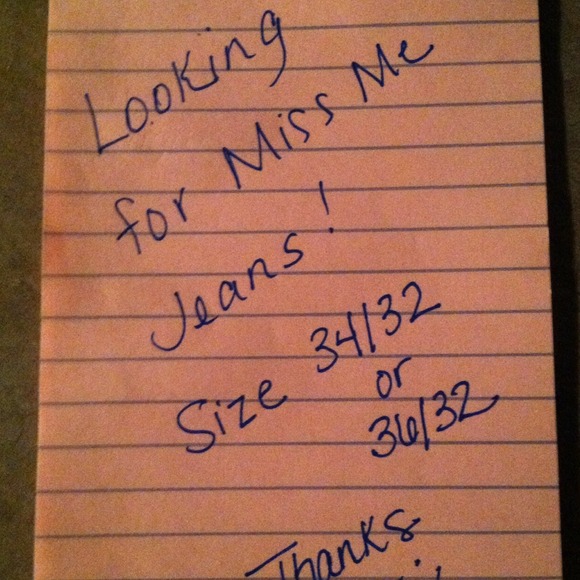 Looking
for Miss Me
Jeans!
Size 34/32
or
36/32
Thanks